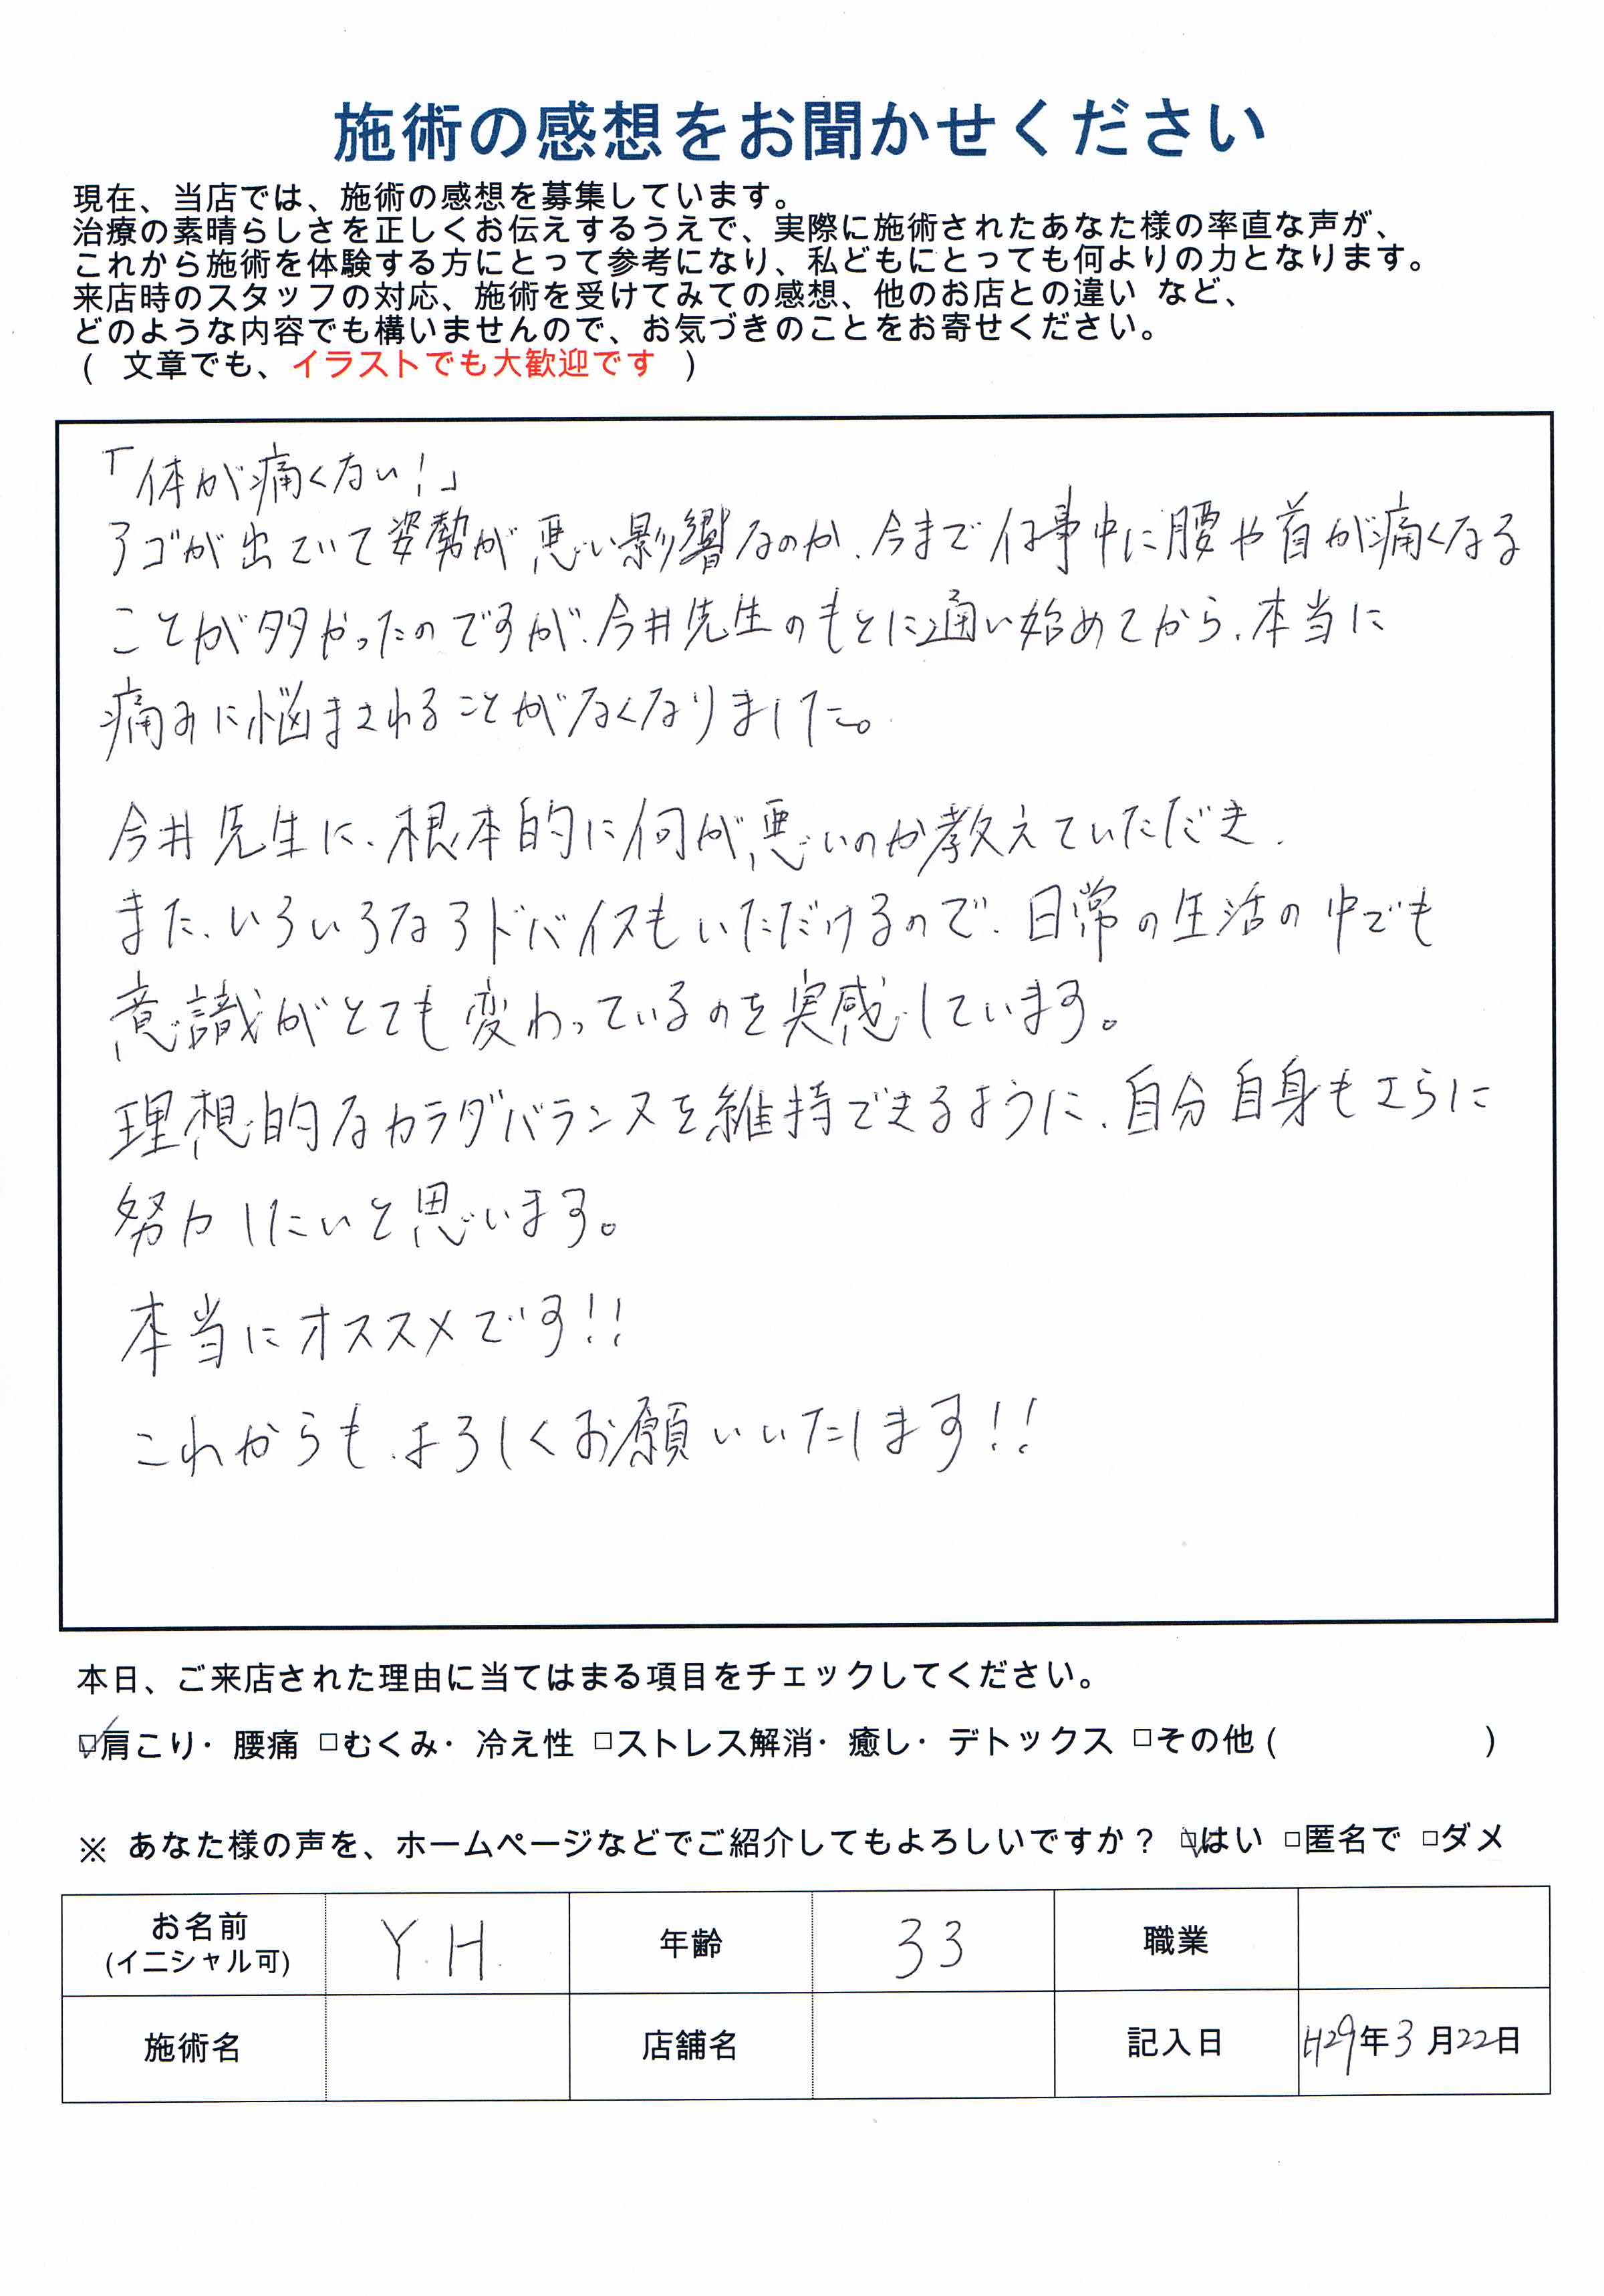 施術の感想をお聞かせください
現在、当店では、施術の感想を募集しています。
治療の素晴らしさを正しくお伝えするうえで、実際に施術されたあなた様の率直な声が、
これから施術を体験する方にとって参考になり、私どもにとっても何よりの力となります。
来店時のスタッフの対応、施術を受けてみての感想、他のお店との違い など、
どのような内容でも構いませんので、お気づきのことをお寄せください。
( 文章でも、イラストでも大歓迎です )
「体が痛くない！」
アゴが出ていて姿勢が悪い影響なのか、今まで仕事中に腰や首が痛くなる
ことが多かったのですが、今井先生のもとに通い始めてから、本当に
痛みに悩まされることがなくなりました。
今井先生に、根本的に何が悪いのか教えていただき、
また、いろいろなアドバイスもいただけるので、日常の生活の中でも
意識がとても変わっているのを実感しています。
理想的なカラダバランスを維持できるように、自分自身もさらに
努力したいと思います。
本当にオススメです!!
これからも、よろしくお願いいたします!!
本日、ご来店された理由に当てはまる項目をチェックしてください。
☑肩こり・腰痛 □むくみ・冷え性 □ストレス解消・癒し・デトックス □その他 ( )
※ あなた様の声を、ホームページなどでご紹介してもよろしいですか？ ☑はい □匿名で □ダメ
お名前 (イニシャル可) Y.H. 年齢 33 職業
施術名 店舗名 記入日 H29年3月22日